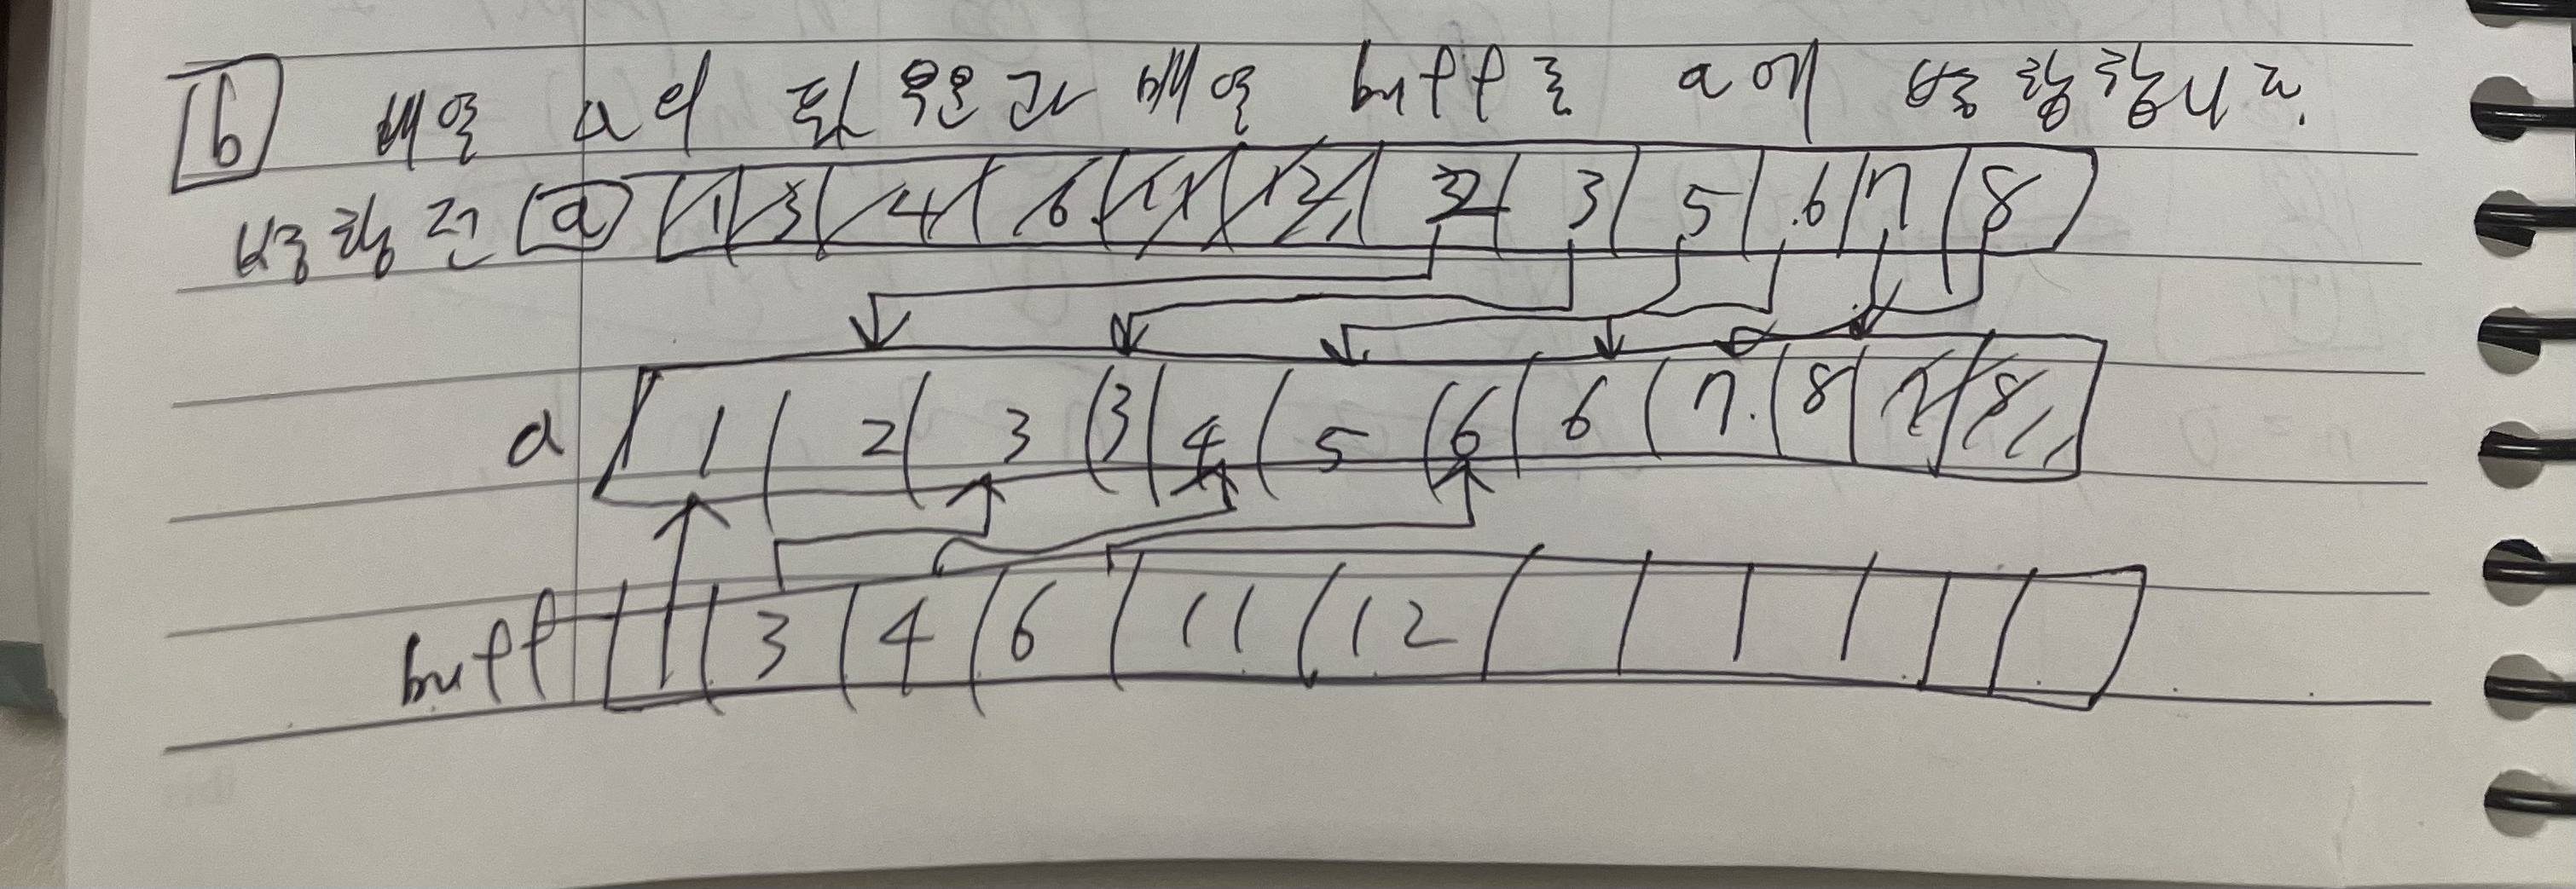 b 배열 a의 뒷부분과 배열 buff를 a에 병합합니다.
병합전 a 1 3 4 6 11 12 2 3 5 6 7 8
a 1 2 3 3 4 5 6 6 7 8 7 8
buff 1 3 4 6 11 12